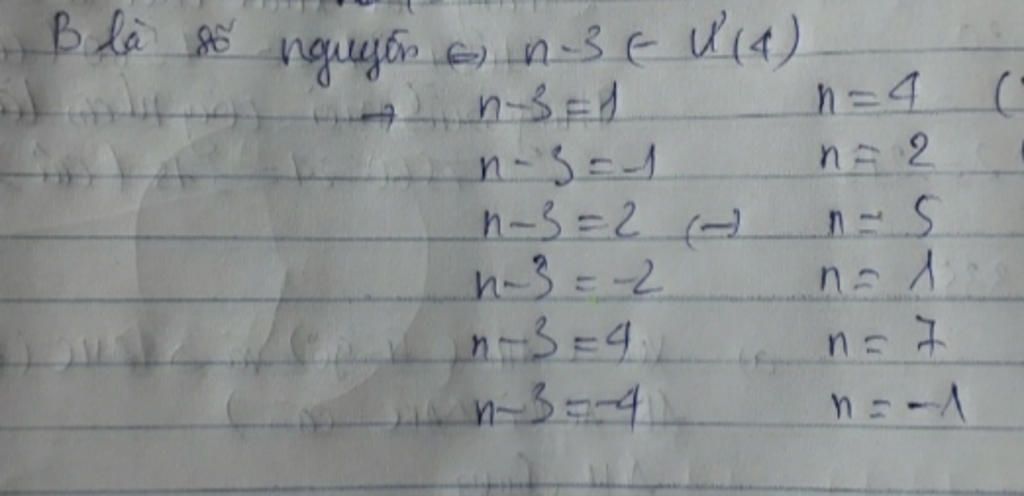 B là số nguyên ⇔ n-3 ∈ Ư(4)
→ n-3=1 n=4 (
n-3=-1 n=2
n-3=2 ⇔ n=5
n-3=-2 n=1
n-3=4 n=7
n-3=-4 n=-1